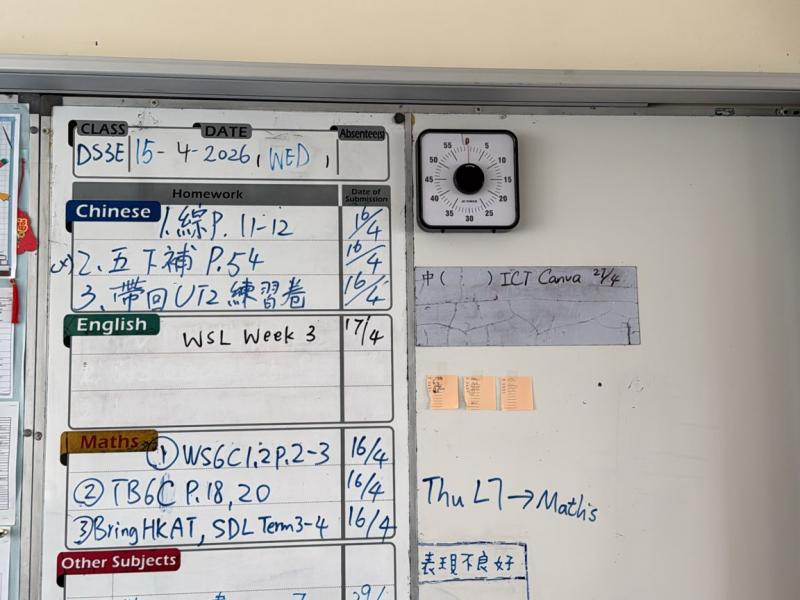 CLASS DATE Absentee(s)
DS3E 15-4-2026, WED,
Homework Date of Submission
Chinese 1. 綜P. 11-12 16/4
2. 五下補 P.54 16/4
3. 帶回UT2 練習卷 16/4
English WSL Week 3 17/4
Maths ① WS6C1.2P.2-3 16/4
② TB6C P.18,20 16/4
③ Bring HKAT, SDL Term3-4 16/4
Other Subjects
55 0 5
50 10
45 15
40 20
35 30 25
中( ) ICT Canva 27/4
Thu L7→Maths
表現不良好